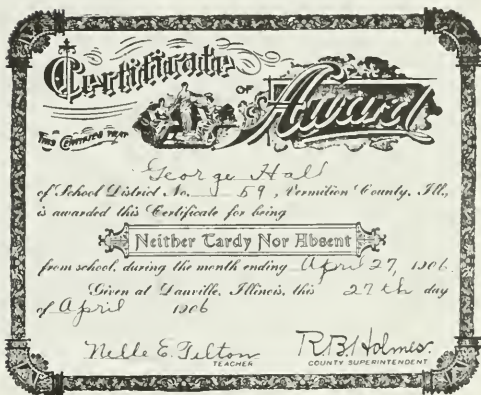 Certificate
OF
Award
THIS CERTIFIES THAT
George Hall
of School District No. 59, Vermilion County, Ill.,
is awarded this Certificate for being
Neither Tardy Nor Absent
from school, during the month ending April 27, 1906.
Given at Danville, Illinois, this 27th day
of April 1906
Nelle E. Filton R.B. Holmes.
TEACHER COUNTY SUPERINTENDENT